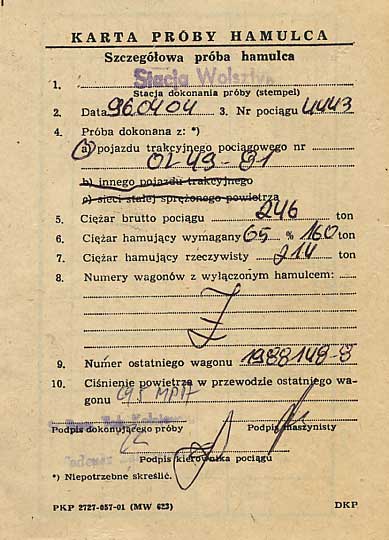 KARTA PRÓBY HAMULCA
Szczegółowa próba hamulca
1. Stacja Wolsztyn
Stacja dokonania próby (stempel)
2. Data 960404 3. Nr pociągu 4443
4. Próba dokonana z: *)
a) pojazdu trakcyjnego pociągowego nr
Ol 49-81
b) innego pojazdu trakcyjnego
c) sieci stałej sprężonego powietrza
5. Ciężar brutto pociągu 246 ton
6. Ciężar hamujący wymagany 65 % 160 ton
7. Ciężar hamujący rzeczywisty 214 ton
8. Numery wagonów z wyłączonym hamulcem:
9. Numer ostatniego wagonu 1988148-8
10. Ciśnienie powietrza w przewodzie ostatniego wa-
gonu MPa
Podpis dokonującego próby Podpis maszynisty
Podpis kierownika pociągu
*) Niepotrzebne skreślić.
PKP 2727-057-01 (MW 623) DKP